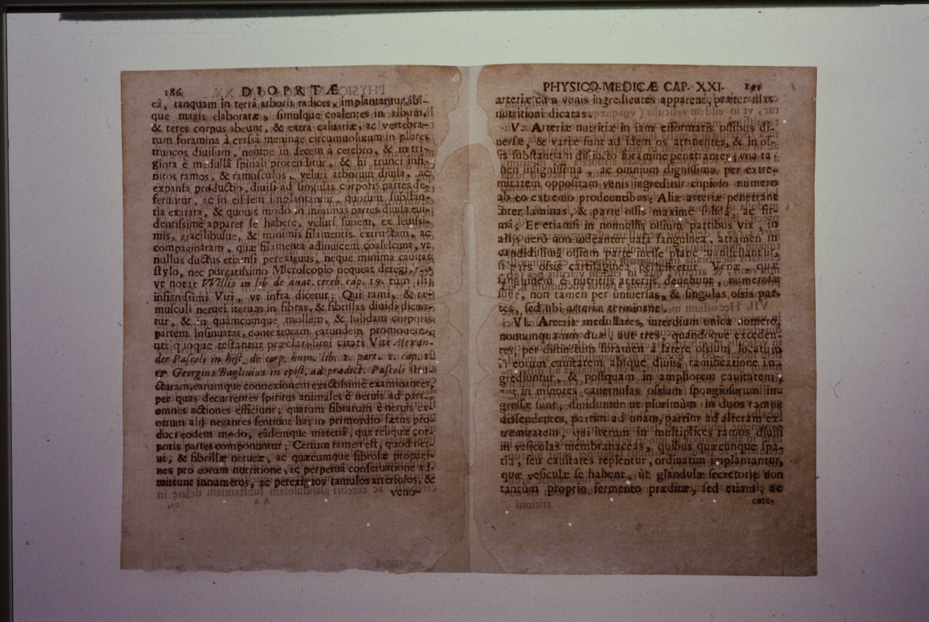 186 DIOPTRÆ
eâ, tanquam in terrâ arboris radices, implantantur, ibi-
que magis elaboratæ, simulque coalentes in album,
& teres corpus abeunt, & extra calvariæ, ac vertebra-
rum foramina à crassa meninge circumvolutum in plures
truncos divisum, nempe in decem à cerebro, & in tri-
ginta è medulla spinali protenditur, & hi trunci infi-
nitos ramos, & ramusculos, veluti arborum divisa, ac
expansa productio, divisi ad singulas corporis partes de-
feruntur, ac in eisdem implantantur, quorum substan-
tia exarata, & quouis modo in minimas partes divisa eui-
dentissimè apparet se habere, veluti funem, ex leuissi-
mis, gracilibusue, & minimis filamentis extructam, ac
compaginatam, quæ filamenta adinuicem coalescunt, vt
nullus ductus etiamsi perexiguus, neque minima cauitas
stylo, nec purgatissimo Microscopio nequeat detegi,
vt notat Willis in lib. de anat. cereb. cap. 19. tum alij
insignissimi Viri, vt infra dicetur; Qui rami, & ra-
musculi neruei iterum in fibras, & fibrillas diuidi dicun-
tur, & in quamcunque mollem, & solidam corporis
partem insinuatas, contextoram earundem promouere,
uti quoque testantur præclatissimi citati Viri Alexan-
der Pascoli in hist. de corp. hum. lib. 1. part. 1. cap. 18
& Georgius Baglivius in epist. ad prædict. Pascoli stru-
cturam, earumque connexionem exactissimè examinantes,
per quas decurrentes spiritus animales è neruis ad par-
omnes actiones efficiunt, quarum fibrarum è neruis ex-
ortum alij negantes sentiunt has in primordio fætus pro-
duci eodem modo, eademque materiâ, quâ reliquæ cor-
poris partes componuntur; Certum tamen est, quod ner-
ui, & fibrillæ nerueæ, ac quæcunque fibrosæ propagi-
nes pro eorum nutritione, ac perpetua conseruatione ad-
mistunt innumeros, ac perexiguos ramulos arteriosos, &
veno-
PHYSICO-MEDICÆ CAP. XXI. 191
arteriæ cum venis ingredientes apparent, præter illas
nutritioni dicatas.
V. Arteriæ nutritiæ in jam efformatis ossibus di-
uersæ, & variæ sunt ad idem os attinentes, & in os-
sis substantiam distincto foramine penetrantes, vna ta-
men insignissima, ac omnium dignissima per extre-
mitatem oppositam venis ingreditur copioso numero
ab eo extremo prodeuntibus; Aliæ arteriæ penetrant
inter laminas, & parte ossis maximè solida, ac fir-
ma; Et etiamsi in nonnullis ossium partibus vix, in
alijs uerò non uideantur uasa sanguinea, attamen in
candidissima ossium parte inesse planè manifestantur,
si pars ossis cartilaginea perlustretur. Venæ, quæ
sanguinem è nutritijs arterijs deuehunt, numerosæ
sunt, non tamen per uniuersas, & singulas ossis par-
tes, sed ubi arteriæ terminant.
VI. Arteriæ medullares, interdium unicâ numero,
nonnunquam duæ, aut tres, quandoque exceden-
tes, per distinctum foramen à latere ossium locatum
in eorum cauitatem abique diuisa ramificatione in-
grediuntur, & postquam in ampliorem cauitatem,
aut in minores cauernulas ossium spongiosorum in-
gressæ sunt, diuiduntur ut plurimùm in duos ramos
dissendentes, partim ad unam, partim ad alteram ex-
tremitatem, qui iterum in multiplices ramos diuisi
in vesiculas membranaceas, quibus quæcunque spa-
tia, seu cauitates replentur, ordinatim implantantur,
quæ vesiculæ se habent, ut glandulæ secretoriæ non
tantùm proprio fermento præditæ, sed etiam, ac
cæte-